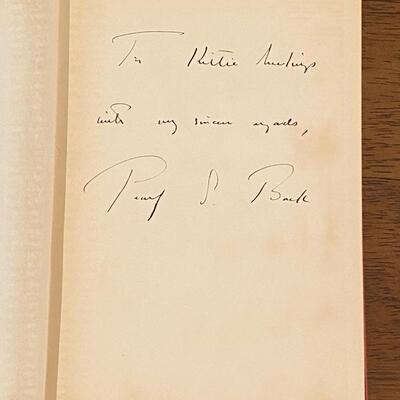 To Kittie
with my sincere regards,
Pearl S. Buck